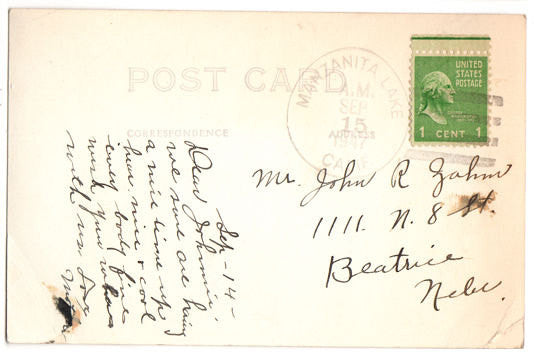 POST CARD
CORRESPONDENCE
ADDRESS
MANZANITA LAKE
A.M.
SEP
15
1947
CALIF.
UNITED
STATES
POSTAGE
1 CENT 1
Mr. John R Zahm
1111. N. 8 St.
Beatrice
Nebr.
Sep - 14 -
Dear Johnie,
we sure are having
a nice time up
here nice & cool
every body fine
wish you was
with us. Love